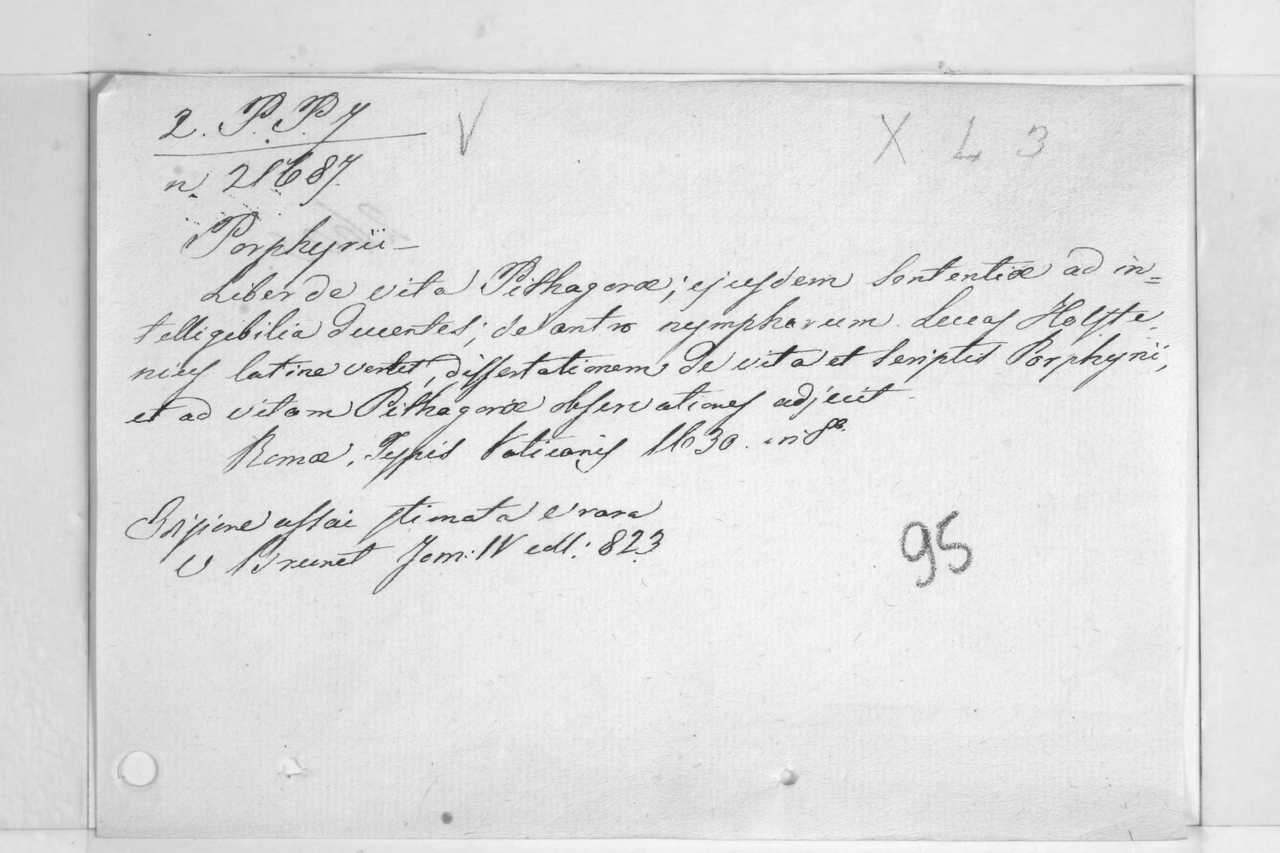 2. P. P. 7 V X L 3
n. 21687.
Porphyrii –
Liber de vita Pithagoræ; ejusdem Sententiæ ad in=
telligibilia ducentes; de antro nympharum. Lucas Holste
nius latine vertit, dissertationem de vita et scriptis Porphyrii,
et ad vitam Pithagoræ observationes adjecit.
Romæ, Typis Vaticanis 1630. in 8.º
Edizione assai stimata e rara
V Brunet Tom: IV coll: 823
95